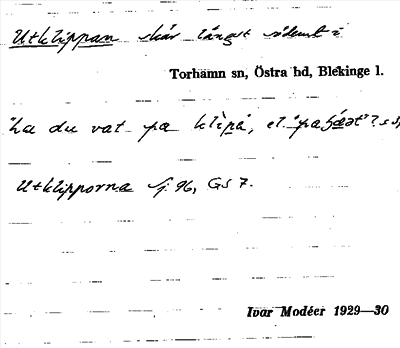 Utklippan skär längst sydost i
Torhamn sn, Östra hd, Blekinge l.
"La du vat pa klìpa, el.
Utklipporna Sj. 96, GS 7.
Ivar Modéer 1929—30